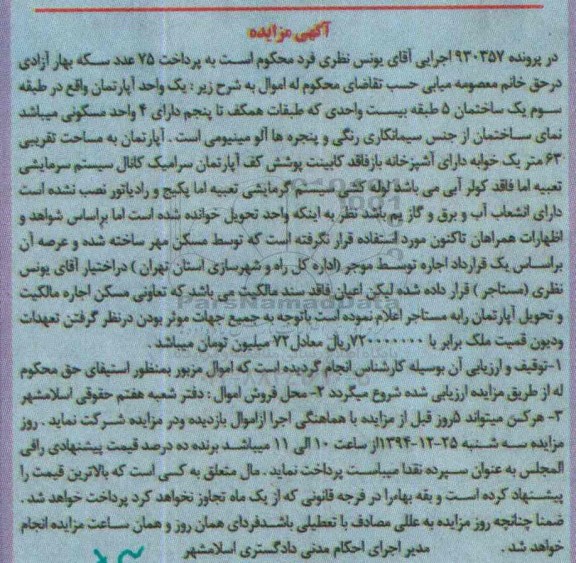 آگهی مزایده
در پرونده ۹۳۰۳۵۷ اجرایی آقای یونس نظری فرد محکوم است به پرداخت ۷۵ عدد سکه بهار آزادی
درحق خانم معصومه میابی حسب تقاضای محکوم له اموال به شرح زیر : یک واحد آپارتمان واقع در طبقه
سوم یک ساختمان ۵ طبقه بیست واحدی که طبقات همکف تا پنجم دارای ۴ واحد مسکونی میباشد
نمای ساختمان از جنس سیمانکاری رنگی و پنجره ها آلو مینیومی است . آپارتمان به مساحت تقریبی
۶۳ متر یک خوابه دارای آشپزخانه بازفاقد کابینت پوشش کف آپارتمان سرامیک کانال سیستم سرمایشی
تعبیه اما فاقد کولر آبی می باشد لوله کشی سیستم گرمایشی تعبیه اما پکیج و رادیاتور نصب نشده است
دارای انشعاب آب و برق و گاز یم باشد نظر به اینکه واحد تحویل خوانده شده است اما براساس شواهد و
اظهارات همراهان تاکنون مورد استفاده قرار نگرفته است که توسط مسکن مهر ساخته شده و عرصه آن
براساس یک قرارداد اجاره توسط موجر (اداره کل راه و شهرسازی استان تهران ) دراختیار آقای یونس
نظری (مستاجر ) قرار داده شده لیکن اعیان فاقد سند مالکیت می باشد که تعاونی مسکن اجاره مالکیت
و تحویل آپارتمان رابه مستاجر اعلام نموده است باتوجه به جمیع جهات موثر بودن درنظر گرفتن تعهدات
ودیون قمیت ملک برابر با ۷۲۰۰۰۰۰۰۰ریال معادل ۷۲ میلیون تومان میباشد .
۱-توقیف و ارزیابی آن بوسیله کارشناس انجام گردیده است که اموال مزبور بمنظور استیفای حق محکوم
له از طریق مزایده ارزیابی شده شروع میگردد ۲- محل فروش اموال : دفتر شعبه هفتم حقوقی اسلامشهر
۳- هرکس میتواند ۵روز قبل از مزایده با هماهنگی اجرا ازاموال بازدیده ودر مزایده شرکت نماید . روز
مزایده سه شنبه ۲۵-۱۲-۱۳۹۴از ساعت ۱۰ الی ۱۱ میباشد برنده ده درصد قیمت پیشنهادی رافی
المجلس به عنوان سپرده نقدا میبایست پرداخت نماید . مال متعلق به کسی است که بالاترین قیمت را
پیشنهاد کرده است و بقه بهارا در فرجه قانونی که از یک ماه تجاوز نخواهد کرد پرداخت خواهد شد .
ضمنا چنانچه روز مزایده به عللی مصادف با تعطیلی باشدفردای همان روز و همان ساعت مزایده انجام
خواهد شد . مدیر اجرای احکام مدنی دادگستری اسلامشهر